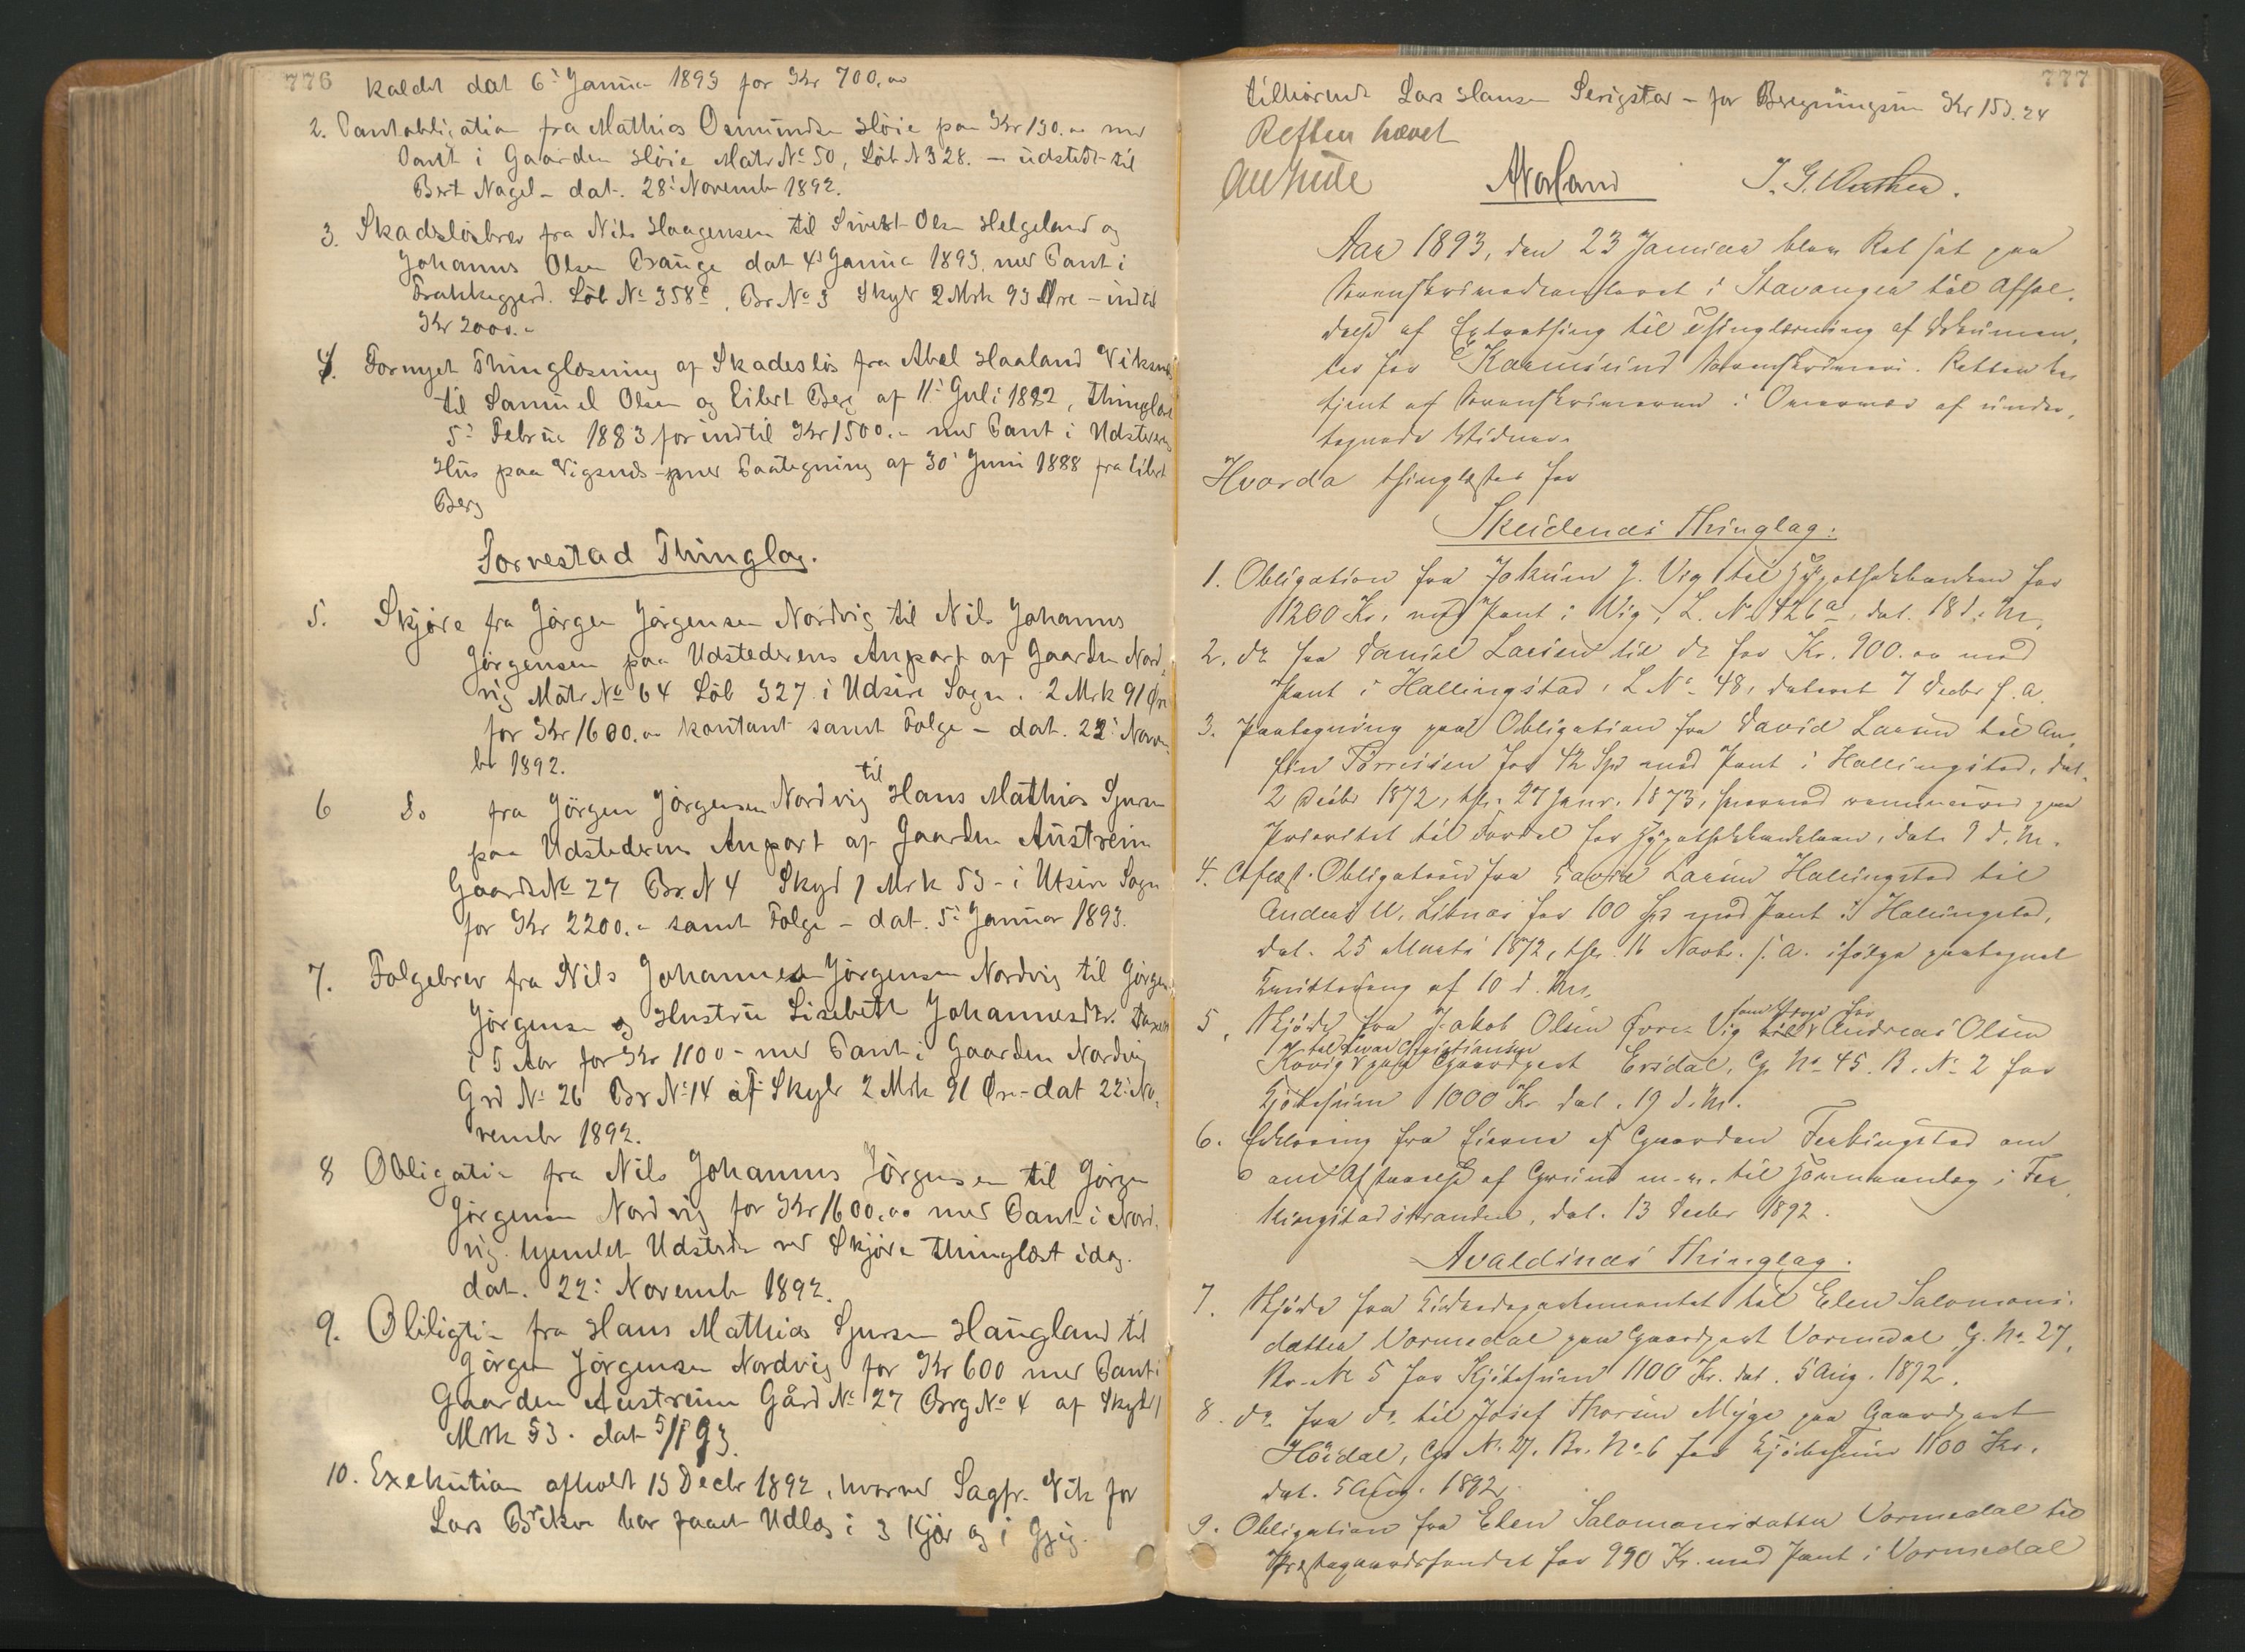 776
kaldet dat 6: Januar 1893 for Kr 700.00
2. Pantobligation fra Mathias Osmundsen Høie paa Kr 130.00 med
Pant i Gaarden Høie Matr No 50, Løb N 328. – udstedt til
Bert Nagel – dat. 28: Novembr 1892.
3. Skadesløsbrev fra Nils Haagensen til Sivert Olsen Helgeland og
Johannes Olsen Bauge dat 4: Januar 1893, med Pant i
Løb No 358c, Br No 3 Skyld 2 Mrk 93 Øre – indtil
Kr 2000.-
4. Fornyet Thinglæsning af Skadesløs fra Abel Haaland Viksnes
til Samuel Olsen og Eilert Berg af 11: Juli 1882, Thinglæst
5: Februar 1883 for indtil Kr 1500.- med Pant i Udstederens
Hus paa Vigsnæs – med Paategning af 30: Juni 1888 fra Eilert
Berg
Torvestad Thinglag.
5. Skjøde fra Jørgen Jørgensen Nordvig til Nils Johannes
Jørgensen paa Udstederens Anpart af Gaarden Nord,
vig Matr No 64 Løb 327 i Udsire Sogn. 2 Mrk 91 Øre
for Kr 1600.00 kontant samt Folge – dat. 22: Novem,
br 1892.
6 Do fra Jörgen Jörgensen Nordvig til Hans Mathias Sjursen
paa Udstederens Anpart af Gaarden Austreim
Gaards No 27 Br. N 4 Skyd 1 Mrk 53 – i Utsire Sogn
for Kr 2200.- samt Folge – dat. 5: Januar 1893.
7. Folgebrev fra Nils Johannes Jörgensen Nordvig til Jörgen
Jörgensen og Hustru Lisebett Johannesdtr.
i 5 Aar for Kr 1100 – med Pant i Gaarden Nordvig
Grd No 26 Br No 14 af Skyld 2 Mrk 91 Øre – dat 22: No,
vembr 1892.
8 Obligation fra Nils Johannes Jörgensen til Jörgen
Jörgensen Nordvig for Kr 1600.00 med Pant i Nord,
vig. hjemlet Udsteder ved Skjøde thinglæst idag.
dat. 22: Novembr 1892.
9. Obligation fra Hans Mathias Sjursen Haugland til
Jörgen Jörgensen Nordvig for Kr 600 med Pant i
Gaarden Austreim Gård No 27 Brg No 4 af Skyld 1
Mrk 53. dat 5/1 93.
10. Exekution afholdt 13 Decbr 1892, hvorved Sagfr. Vik for
Lars har faaet Udlæg i 3 Kjør og i
777
tilhørende Lars Hansen – for Kr 153.24
Retten hævet
Aar 1893, den 23 Januar blev Ret sat paa
Sorenskriverkontoret i Stavanger til Afhol,
delse af Extrathing til Thinglæsning af Dokumen,
ter for Karmsund Sorenskriveri. Retten be,
tjent af Sorenskriveren i Overvær af under,
tegnede Vidner.
Hvorda thinglæstes for
Skudenæs Thinglag:
1. Obligation fra Jokum J. Vig til Hypothekbanken for
1200 Kr. med Pant i Vig, L. No 426a, dat. 18 d. M.
2. do fra Daniel Larsen til do for Kr. 900.00 med
Pant i Hallingstad, L No 48, dateret 7 Decbr f. a.
3. Paategning paa Obligation fra David Larsen til An,
Tørresen for 42 Spd med Pant i Hallingstad, dat.
2 Decbr 1872, thl. 27 Janr. 1873, hvorved renunceres paa
Prioritet til Fordel for Hypothekbanklaan, dat. 9 d. M.
4. Aflæst. Obligation fra David Larsen Hallingstad til
for 100 Spd med Pant i Hallingstad,
dat. 25 Marts 1872, thl. 16 Novbr. s. a. ifølge paategnet
Kvittering af 10 d. M.
5. Skjøde fra Jakob Olsen Øvre Vig Andreas Olsen
Kovig til Christiansen paa Gaardpart Ersdal, G. No 45. B. No 2 for
Kjøbesum 1000 Kr. dat. 19 d. M.
6. Erklæring fra Eierne af Gaarden Ferkingstad om
Afstaaelse af Grund m. v. til Havneanlæg i Fer,
kingstadstranden, dat. 13 Decbr 1892.
Avaldsnæs Thinglag.
7. Skjøde fra Kirkedepartementet til Elen Salomons,
datter Vormedal paa Gaardpart Vormedal G. No 27,
Br. No 5 for Kjøbesum 1100 Kr. dat. 5 Aug. 1892.
8. do. fra do. til Josef Thorsen Myge paa Gaardpart
Høidal, G. No 27. Br. No 6 for Kjøbesum 1100 Kr.
dat. 5 Aug. 1892.
9. Obligation fra Elen Salomonsdatter Vormedal til
Præstegaardsfondet for 990 Kr. med Pant i Vormedal